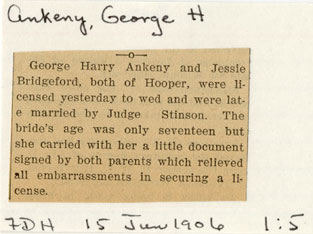 Ankeny, George H
—o—
George Harry Ankeny and Jessie
Bridgeford, both of Hooper, were li-
censed yesterday to wed and were lat-
e married by Judge Stinson. The
bride's age was only seventeen but
she carried with her a little document
signed by both parents which relieved
all embarrassments in securing a li-
cense.
7DH 15 Jun 1906 1:5